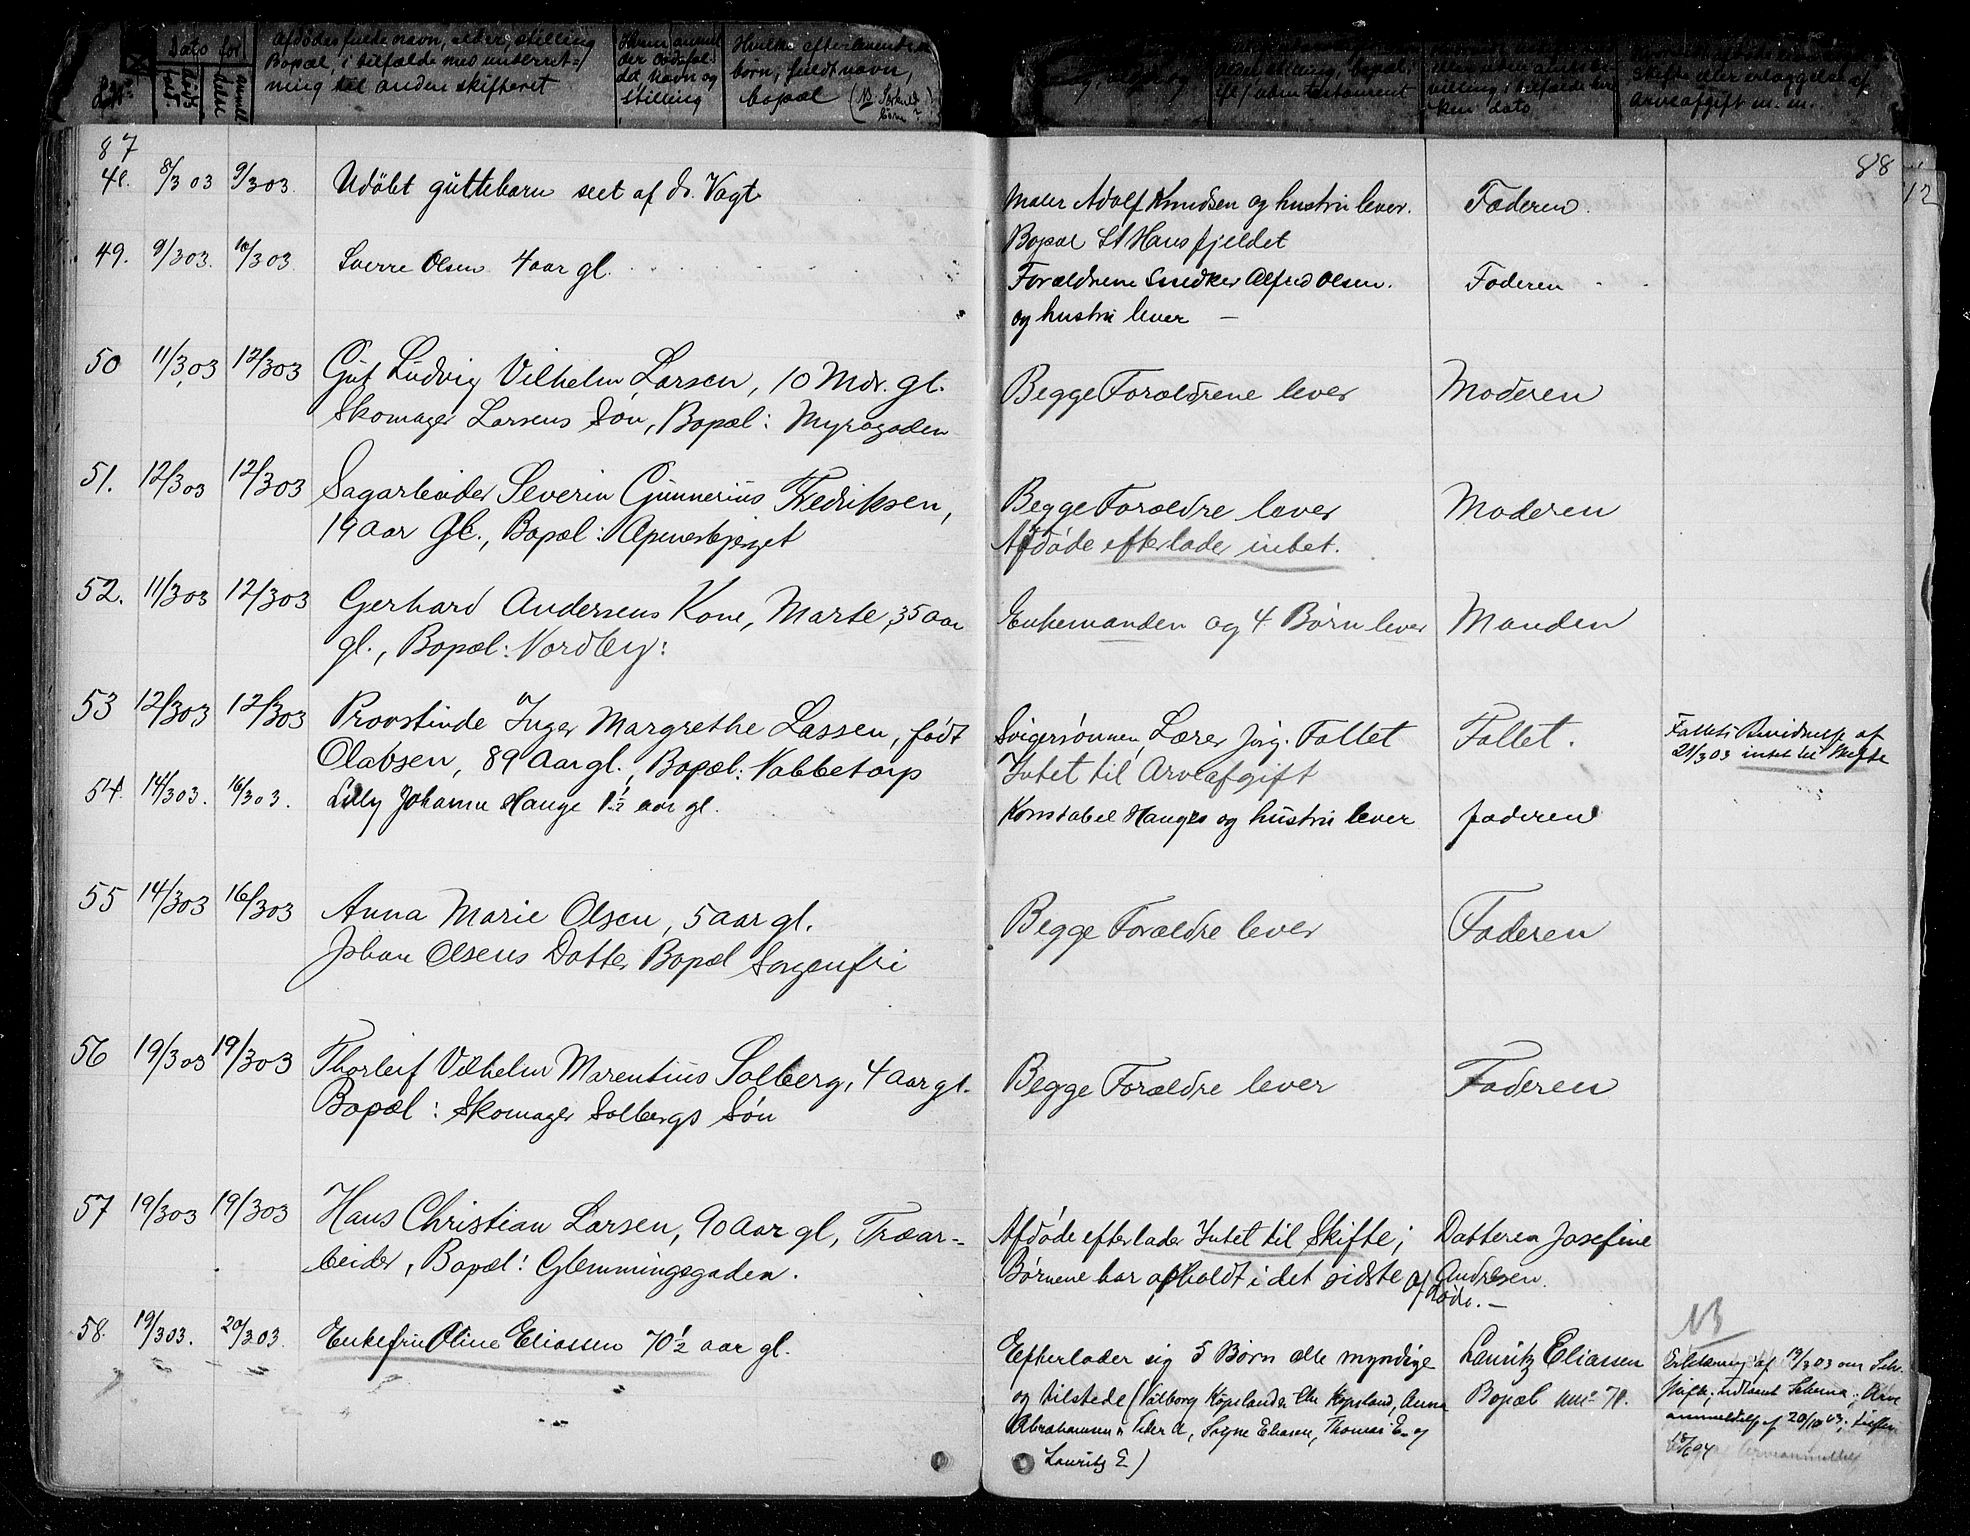 Dato for
Afdødes fulde navn, alder, stilling
Bopæl, i tilfælde med underret-
ning til anden skifteret
stilling
Hvilke efterlevende
børn, fuldt navn,
bopæl
skifte eller erlæggelse af
arveafgift m. m.
ken dato
87
88
12
48. 8/3 03 9/3 03. Udöbt guttebarn seet af dr. Vogt
Maler Adolf Knudsen og hustru lever. Faderen.
Bopæl St Hansfjeldet
49. 9/3 03. 10/3 03 Sverre Olsen 4 aar gl.
Forældrene Snedker Alfred Olsen. Faderen
og hustru lever —
50 11/3 03 12/3 03 Gut Ludvig Vilhelm Larsen, 10 Mdr. gl.
Skomager Larsens Søn, Bopæl: Myragaden
Begge Forældrene lever Moderen
51. 12/3 03 12/3 03 Sagarbeider Severin Gunnerius Fredriksen,
19 aar Gl., Bopæl: Apenesbjerget
Begge Forældre lever Moderen
Afdøde efterlader intet.
52. 11/3 03 12/3 03 Gerhard Andersens Kone, Marte, 35 aar
gl., Bopæl: Nordby:
Enkemanden og 4 Børn lever Manden
53 12/3 03 12/3 03 Provstinde Inger Margrethe Lassen, født
Olabsen, 89 Aar gl., Bopæl: Nabbetorp
Svigersønnen, Lærer Jörg. Follet Follet.
Intet til Arveafgift
21/3 03 intet til Skifte
54. 14/3 03. 16/3 03. Lilly Johanne Hauge 1½ aar gl.
Konstabel Hauges og hustru lever faderen
55 14/3 03 16/3 03 Anna Marie Olsen, 5 aar gl.
Johan Olsens Datter Bopæl Sorgenfri
Begge Forældre lever Faderen
56 19/3 03 19/3 03 Thorleif Vilhelm Marentius Solberg, 4 aar gl.
Bopæl: Skomager Solbergs Søn
Begge Forældre lever Faderen
57 19/3 03 19/3 03 Hans Christian Larsen, 90 aar gl, Træar-
beider, Bopæl: Glemmingegaden.
Afdøde efterlader Intet til Skifte; Datteren Josefine
Børnene har opholdt i det sidste Af- Andresen.
døde. —
58. 19/3 03. 20/3 03. Enkefru Oline Eliassen 70½ aar gl.
NB
Efterlader sig 5 Børn alle myndige Lauritz Eliassen
og tilstede (Valborg Kopsland Anna Bopæl
Abrahamsen Signe Eliasen, Thomas E. og
Lauritz E.)
Erklæring af 19/3 03 om Selv-
skifte,
anmeldelse af 20/10 03;